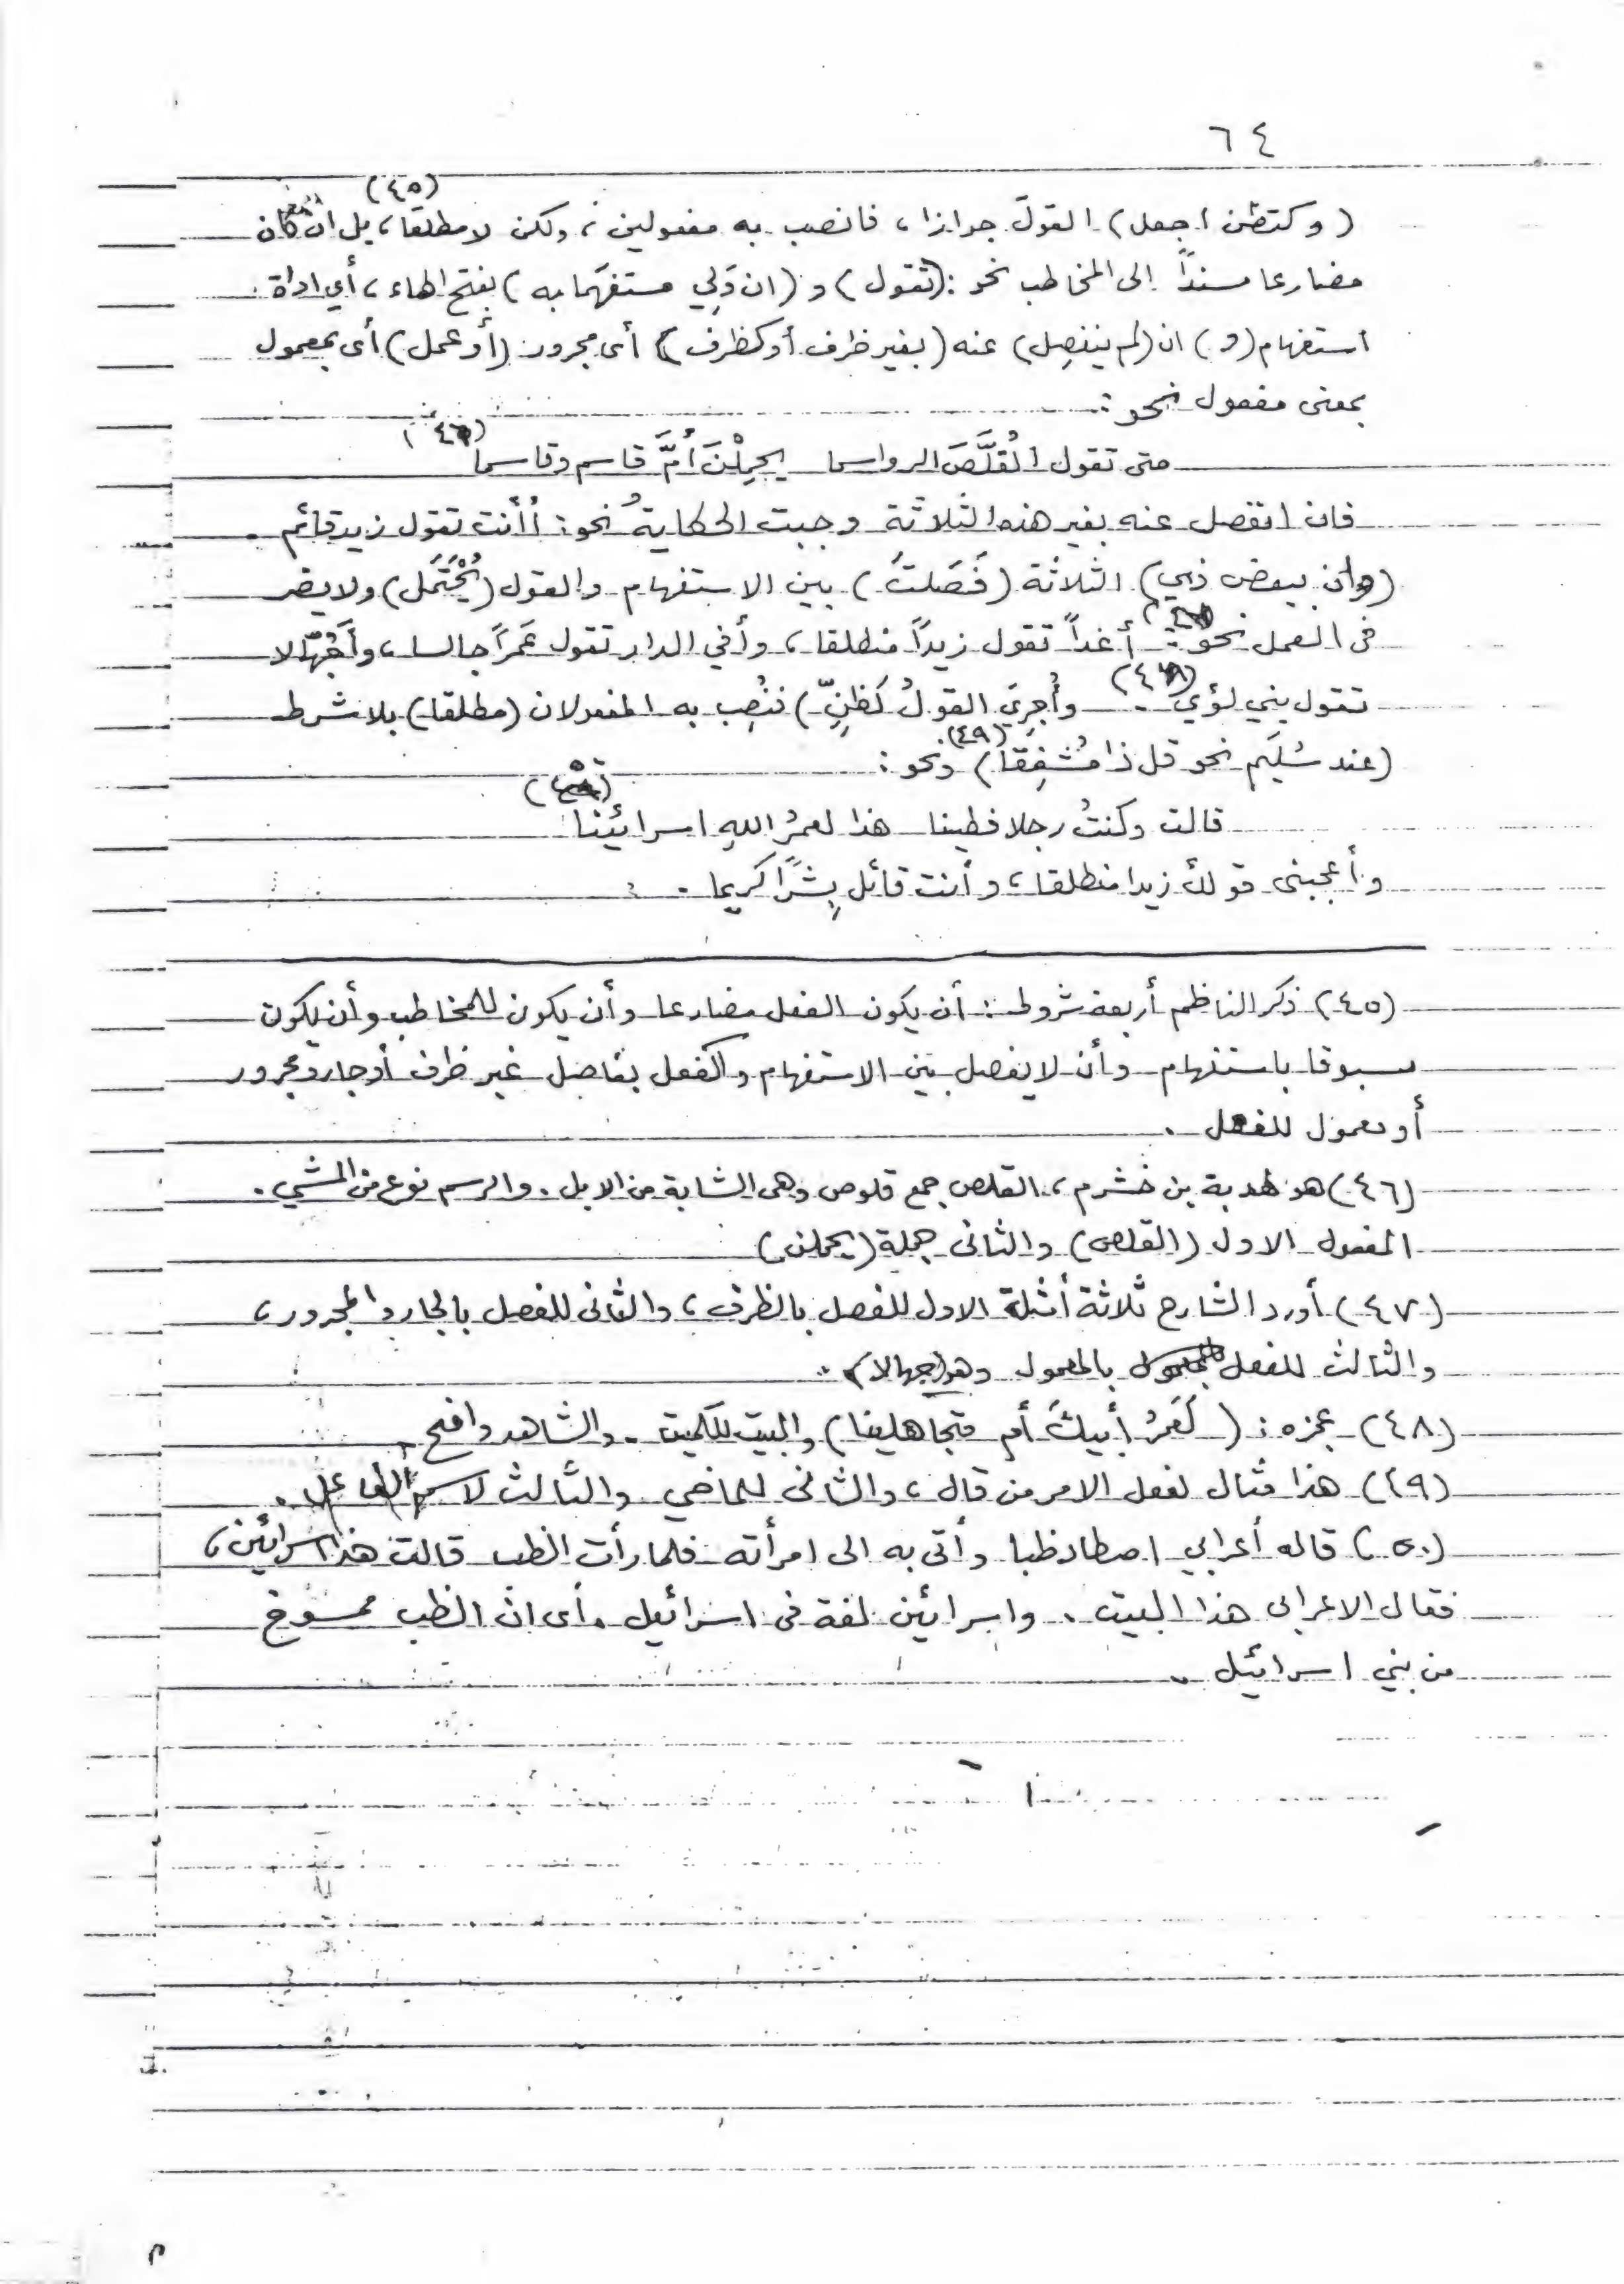 ٦٤
(٤٥)
(وكتظن اجعل) القولَ جوازا، فانصب به مفعولين، ولكن لا مطلقا، بل ان كان
مضارعا مسنداً الى المخاطب نحو: (تقول) و (ان وَلِي مستفهَما به) بفتح الهاء، أي اداة
استفهام (و) ان (لم ينفصِل) عنه (بغير ظرف أو كظرف) أى مجرور (أو عمل) أى بمعمول
بمعنى مفعول نحو:
متى تقول القُلَّصَ الرواسما يحمِلْنَ أُمَّ قاسم وقاسما (٤٦)
فان انفصل عنه بغير هذه الثلاثة وجبت الحكاية نحو: أأنت تقول زيد قائم.
(وان ببعض ذي) الثلاثة (فَصَلتَ) بين الاستفهام والقول (يُحْتَمَل) ولا يضر
فى العمل نحو: أغداً تقول زيداً منطلقا، وأفي الدار تقول عَمراً جالسا، وأجُهّالا
تقول بني لؤي (٤٨). وأُجرِيَ القولُ كَظَنٍّ) فنُصِب به المفعولان (مطلقا) بلا شرط
(عند سُلَيم نحو قل ذا مُشفِقا) (٤٩) ونحو:
قالت وكنتُ رجلا فطينا هذا لعمرُ اللهِ اسرائينا (٥٠)
وأعجبنى قولك زيدا منطلقا، وأنت قائل بِشراً كريما.
(٤٥) ذكر الناظم أربعة شروط: أن يكون الفعل مضارعا وأن يكون للمخاطب وأن يكون
مسبوقا باستفهام وأن لا يفصل بين الاستفهام والفعل بفاصل غير ظرف أو جار ومجرور
أو معمول للفعل.
(٤٦) هو لهدبة بن خشرم، القلص جمع قلوص وهى الشابة من الابل. والرسم نوع من المشي.
المفعول الاول (القلص) والثانى جملة (يحملن)
(٤٧) أورد الشارح ثلاثة أمثلة الاول للفصل بالظرف، والثانى للفصل بالجار والمجرور،
والثالث للفعل بالمعمول وهو (جهالا).
(٤٨) عجزه: (لَعَمرُ أبيكَ أم متجاهلينا) والبيت للكميت. والشاهد واضح.
(٤٩) هذا مثال لفعل الامر من قال، والثانى للماضي والثالث لاسم الفاعل.
(٥٠) قاله أعرابي اصطاد ظبا وأتى به الى امرأته فلما رأت الظب قالت هذا اسرائين،
فقال الاعرابى هذا البيت. واسرائين لغة فى اسرائيل. أى ان الظب ممسوخ
من بني اسرائيل.